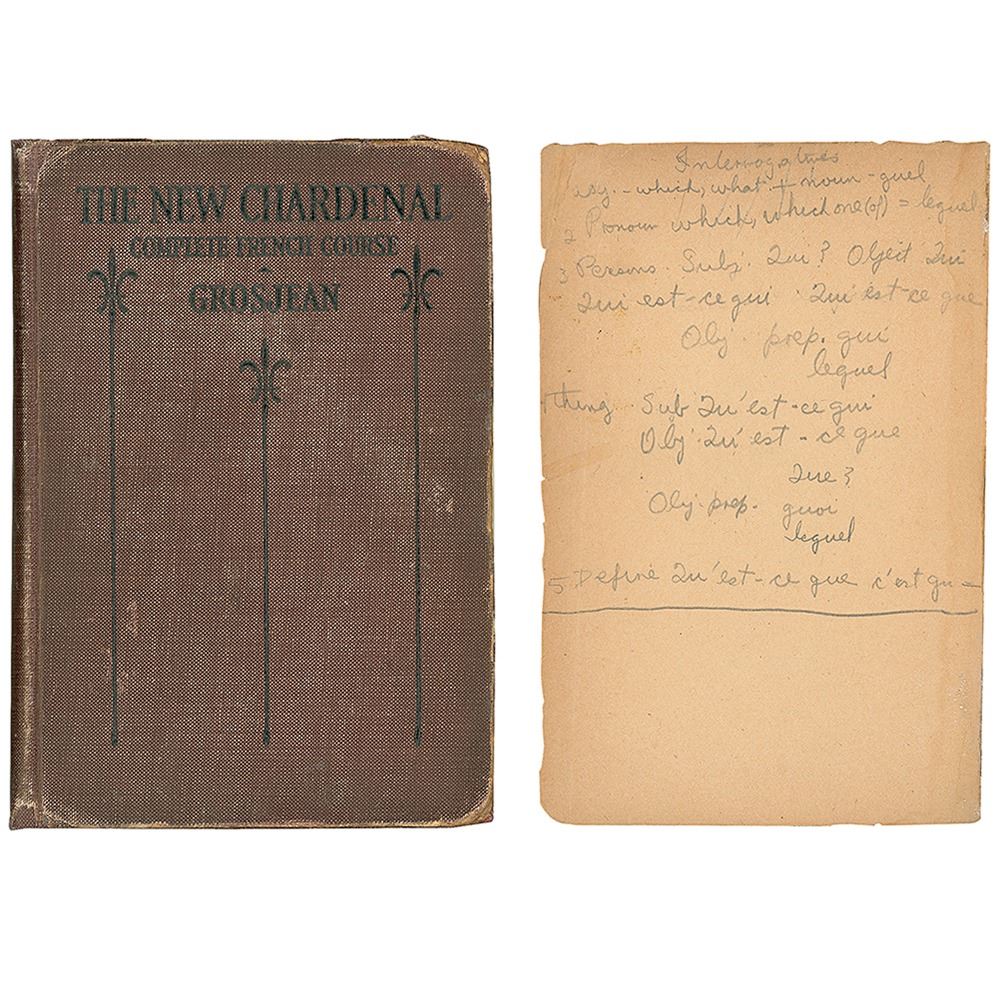 THE NEW CHARDENAL
COMPLETE FRENCH COURSE
GROSJEAN
Interrogatives
adj. - which, what + noun - quel
2 Pronoun which, which one (of) = lequel
3 Persons. Subj. Qui? Object Qui
Qui est-ce qui Qui est-ce que
Obj. prep. qui
lequel
thing Sub Qu'est-ce qui
Obj. Qu'est-ce que
Que?
Obj. prep. quoi
lequel
5. Define Qu'est-ce que c'est qu